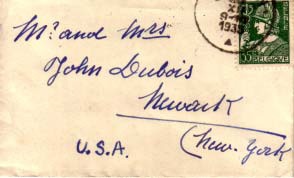 Mr and Mrs
John Dubois
Newark
New-York
U.S.A.
BELGIQUE